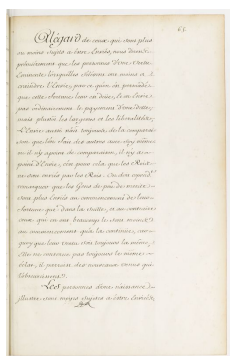 A l'égard de ceux qui sont plus
ou moins sujets a estre Enviés, nous disons
que les personnes d'une vertu
Eminente lorsqu'elles s'élevent ont moins a
craindre l'Envie, parce qu'on est persuadé
que cette elevation leur est deüe, & on Envie
pas ordinairement le payement d'une dette,
mais plustost les largesses et les liberalités.
L'Envie aussi naist toujours de la comparai-
son que l'on fait des autres avec soy même
ou il n'y a point de comparaison, il n'y a
point d'Envie, c'est pour cela que les Rois
ne sont enviés que par les Rois. On doit
remarquer que les Gens de peu de merite
sont plus Enviés au commencement de leur
fortune que dans la suitte, et au contraire
ceux qui en ont beaucoup le sont moins
au commencement qu'a la continüe, car
quoyque leur vertu soit toujours la même,
Elle ne conserve pas toujours le même
éclat, il paroist des nouveaux venus qui
l'obscurcissent.
Les personnes d'une naissance
illustre sont moins sujettes a estre Enviées,